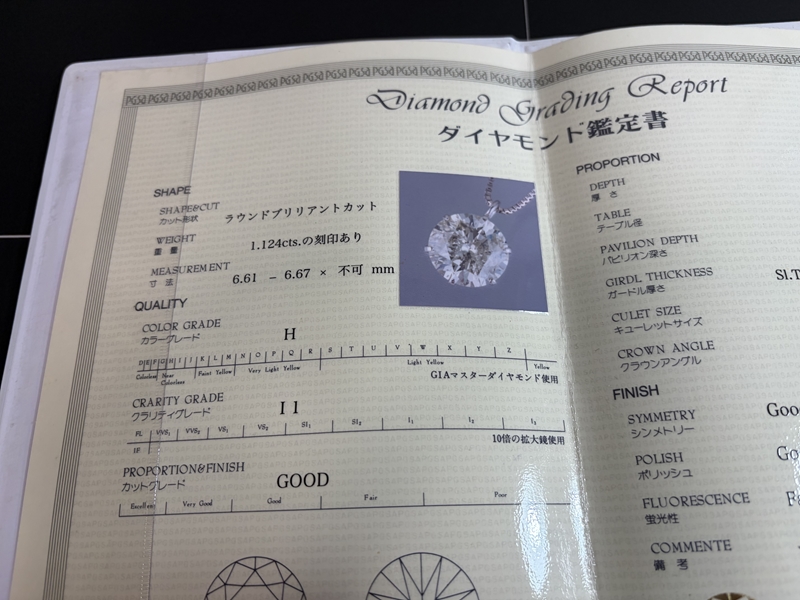 PGSA PGSA PGSA PGSA PGSA PGSA PGSA PGSA PGSA PGSA
Diamond Grading Report
ダイヤモンド鑑定書
SHAPE
SHAPE&CUT
カット形状
ラウンドブリリアントカット
WEIGHT
重 量
1.124cts.の刻印あり
MEASUREMENT
寸 法
6.61 – 6.67 × 不可 mm
QUALITY
COLOR GRADE
カラーグレード
H
D E F G H I J K L M N O P Q R S T U V W X Y Z
Colorless Near Colorless Faint Yellow Very Light Yellow Light Yellow Yellow
GIAマスターダイヤモンド使用
CRARITY GRADE
クラリティグレード
I 1
FL VVS1 VVS2 VS1 VS2 SI1 SI2 I1 I2 I3
IF
10倍の拡大鏡使用
PROPORTION&FINISH
カットグレード
GOOD
Excellent Very Good Good Fair Poor
PROPORTION
DEPTH
厚 さ
TABLE
テーブル径
PAVILION DEPTH
パビリオン深さ
GIRDL THICKNESS
ガードル厚さ
SI.T
CULET SIZE
キューレットサイズ
CROWN ANGLE
クラウンアングル
FINISH
SYMMETRY
シンメトリー
Goo
POLISH
ポリッシュ
Go
FLUORESCENCE
蛍光性
Fa
COMMENTE
備 考